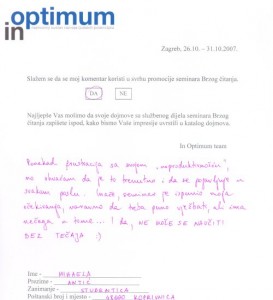 in optimum
Zagreb, 26.10. - 31.10.2007.
Slažem se da se moj komentar koristi u svrhu promocije seminara Brzog čitanja.
DA NE
Najljepše Vas molimo da svoje dojmove sa službenog dijela seminara Brzog
čitanja zapišete ispod, kako bismo Vaše impresije uvrstili u katalog dojmova.
In Optimum team
"neproduktivnošću",
da je to trenutno i da se pojavljuje u
svakom poslu. Inače seminar je ispunio moja
očekivanja, naravno da treba puno vježbati, ali ima
nečega u tome...! DA, NE MOŽE SE NAUČITI
BEZ TEČAJA :)
Ime - MIHAELA
Prezime - ANTIĆ
Zanimanje - STUDENTICA
Poštanski broj i mjesto - KOPRIVNICA